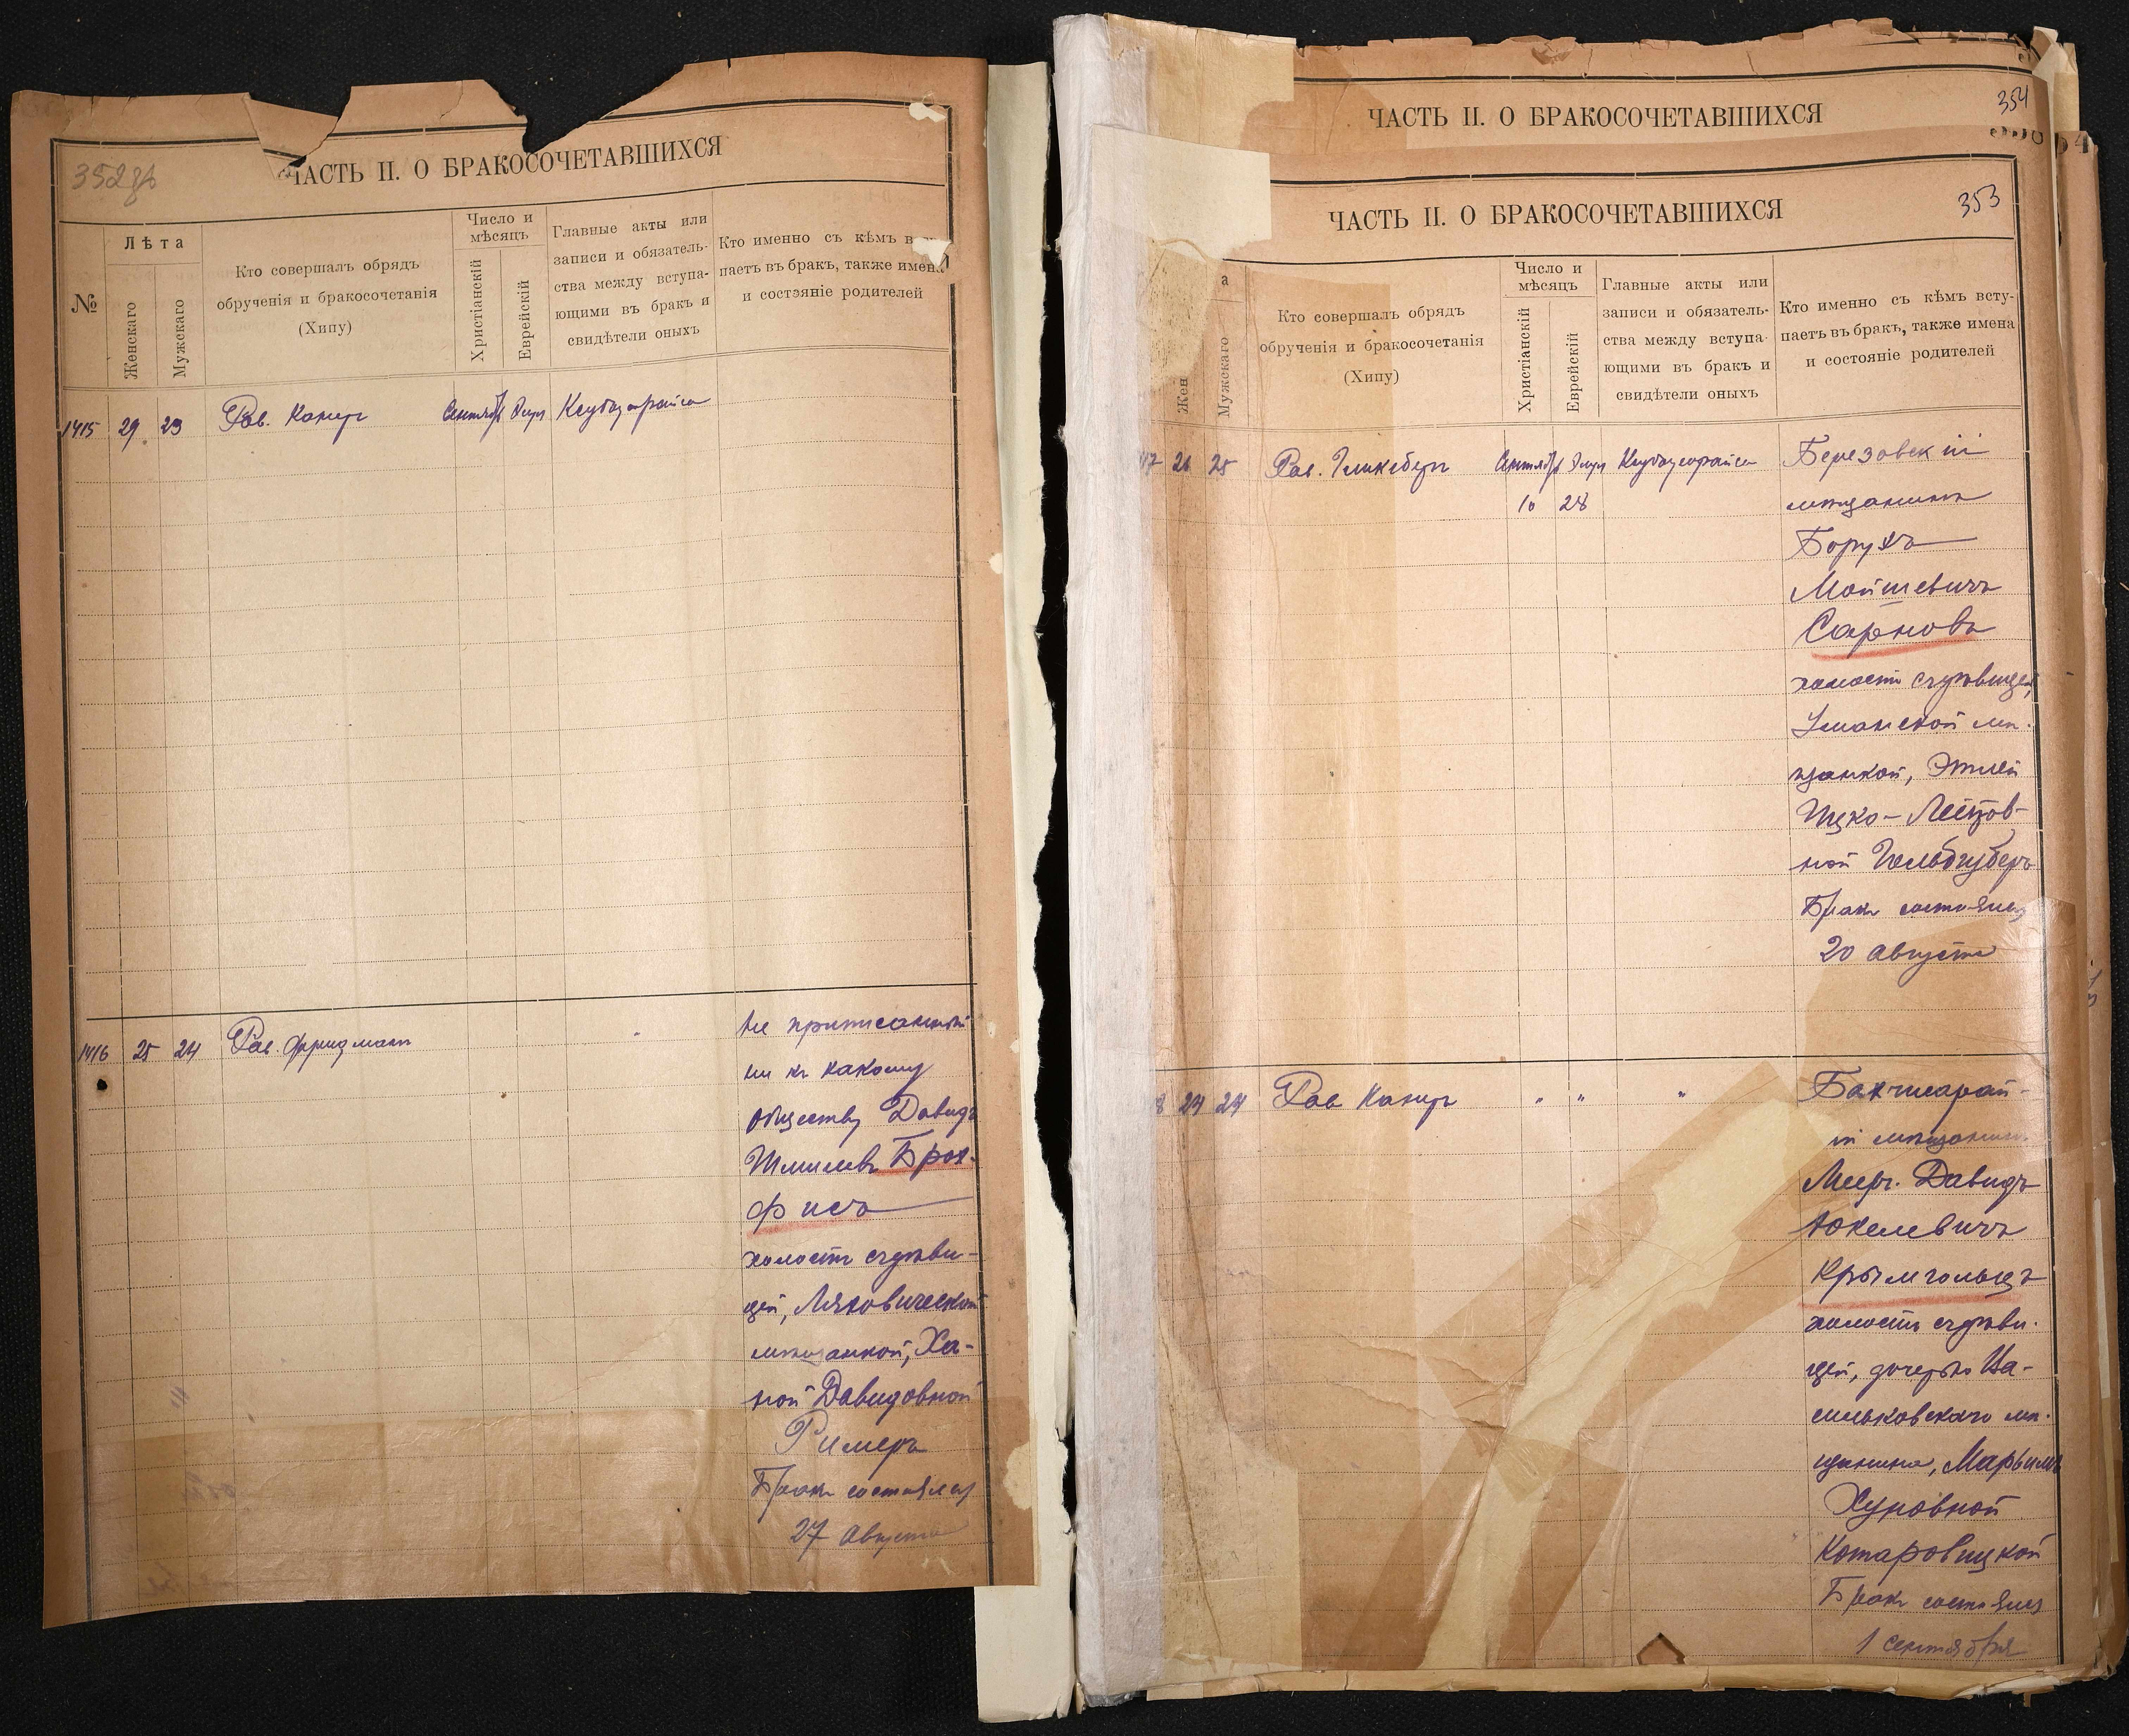 352об
ЧАСТЬ II. О БРАКОСОЧЕТАВШИХСЯ
№
Лѣта
Женскаго
Мужскаго
Кто совершалъ обрядъ
обрученія и бракосочетанія
(Хипу)
Число и
мѣсяцъ
Христіанскій
Еврейскій
Главные акты или
записи и обязатель-
ства между вступа-
ющими въ бракъ и
свидѣтели оныхъ
Кто именно съ кѣмъ
паетъ въ бракъ, также имена
и состояніе родителей
1415 29 23 Рав. Капер Сентябр Элул Ксубо
1416 25 24 Рав. Фридман
Не приписанный
ни къ какому
обществу Давидъ
Шмилевъ Брох-
фисъ
холостъ съ дѣви-
цей, Ляховической
мѣщанкой, Ха-
ной Давидовной
Ример
Бракъ состоялся
27 Августа
ЧАСТЬ II. О БРАКОСОЧЕТАВШИХСЯ
354
ЧАСТЬ II. О БРАКОСОЧЕТАВШИХСЯ
353
а
Жен
Мужскаго
Кто совершалъ обрядъ
обрученія и бракосочетанія
(Хипу)
Число и
мѣсяцъ
Христіанскій
Еврейскій
Главные акты или
записи и обязатель-
ства между вступа-
ющими въ бракъ и
свидѣтели оныхъ
Кто именно съ кѣмъ всту-
паетъ въ бракъ, также имена
и состояніе родителей
17 26 25 Рав. Гликсберг Сентябр Элул
10 28
Березовскій
мѣщанинъ
Борухъ
Мойшевичъ
Сарновъ
холостъ съ дѣвицей,
Уманской мѣ-
щанкой, Этлей
Ицко-Лейзов-
ной
Бракъ состоялся
20 Августа
8 24 24 Рав Капер " " "
Бахчисарай-
ій мѣщанин.
Меер. Давидъ
Юкелевичъ
Крымгольцъ
холостъ съ дѣви-
цей, дочерью Ва-
сильковскаго мѣ-
щанина, Марьимъ
Хуновной
Котаровицкой
Бракъ состоялся
1 Сентября